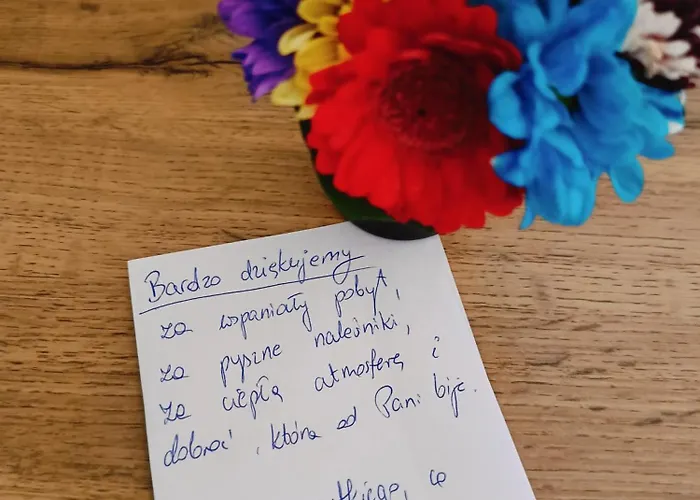 Bardzo dziękujemy
za wspaniały pobyt,
za pyszne naleśniki,
za ciepłą atmosferę i
dobroć, która od Pani bije.
co